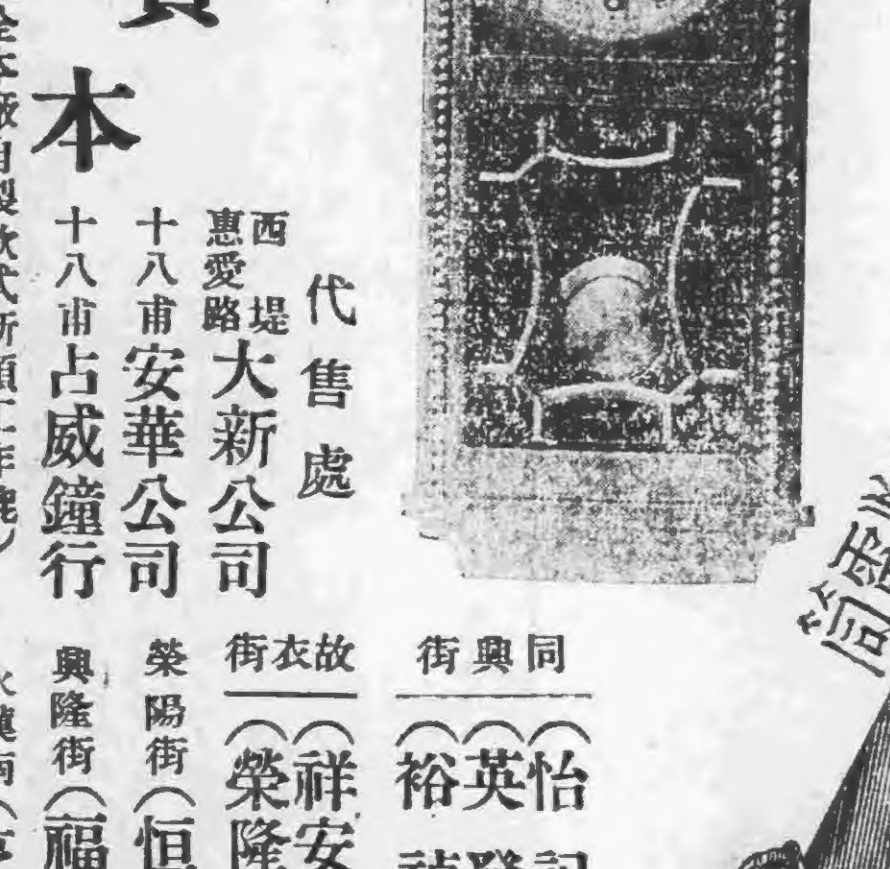 代售處
西堤
惠愛路
大新公司
十八甫安華公司
十八甫占威鐘行
本
同興街
怡
英
裕
故衣街
祥安
榮隆
榮陽街
恒
興隆街
福